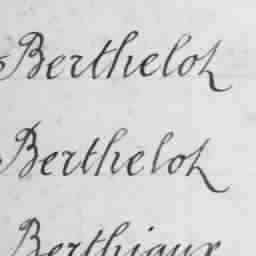 Berthelot
Berthelot
Berthiaux